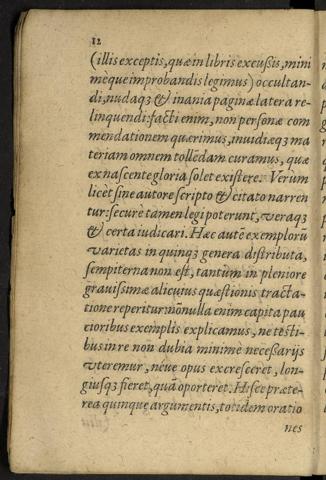 12
(illis exceptis, quæ in libris excußis, mini
mèque improbandis legimus) occultan-
di, nudaqꝫ & inania paginæ latera re-
linquendi: facti enim, non personæ com
mendationem quærimus, inuidiæqꝫ ma
teriam omnem tollẽdam curamus, quæ
ex nascente gloria solet existere. Verum
licèt sine autore scripto & citato narren
tur: securè tamen legi poterunt, veraqꝫ
& certa iudicari. Hæc autẽ exemplorũ
varietas in quinqꝫ genera distributa,
sempiterna non est, tantùm in pleniore
grauißimæ alicuius quæstionis tracta-
tione reperitur: nõnulla enim capita pau
cioribus exemplis explicamus, ne testi-
bus in re non dubia minimè necessarijs
vteremur, néue opus excresceret, lon-
giusqꝫ fieret, quã oporteret. Hisce præte-
rea quinque argumentis, totidem oratio
nes